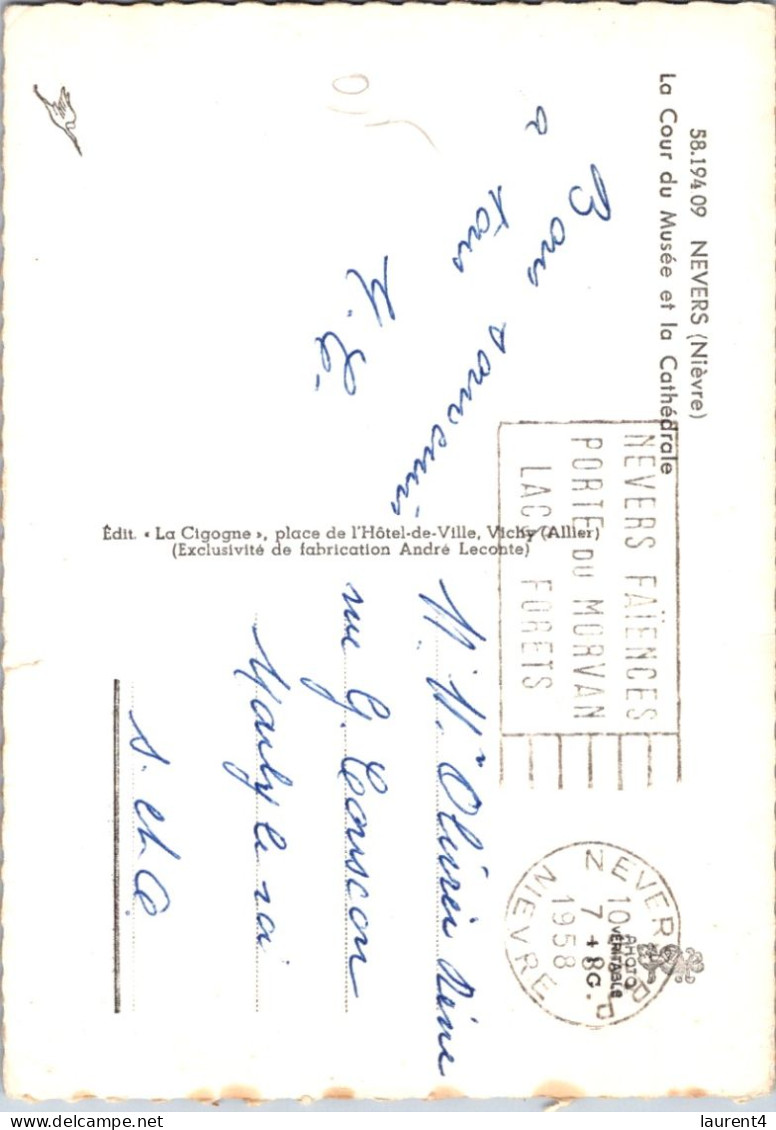 58.194 09 NEVERS (Nièvre)
La Cour du Musée et la Cathédrale
Bons souvenirs
à tous
Édit. « La Cigogne », place de l'Hôtel-de-Ville, Vichy (Allier)
(Exclusivité de fabrication André Leconte)
NEVERS FAÏENCES
PORTE DU MORVAN
LACS FORETS
NEVERS
1958
NIEVRE
PHOTO
VÉRITABLE
M. Mr Olivier René
rue G.
Marly le roi
S. et O
laurent4